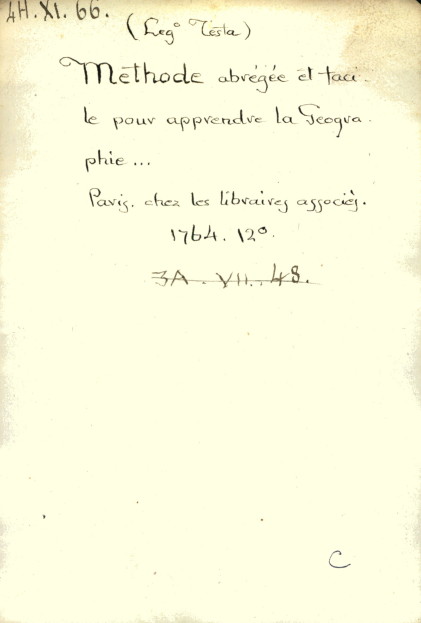 4H.XI.66.
(Leg° Testa)
Méthode abrégée et faci-
le pour apprendre la Geogra-
phie...
Paris. chez les libraires associés.
1764. 12°.
3A.VII.48.
C